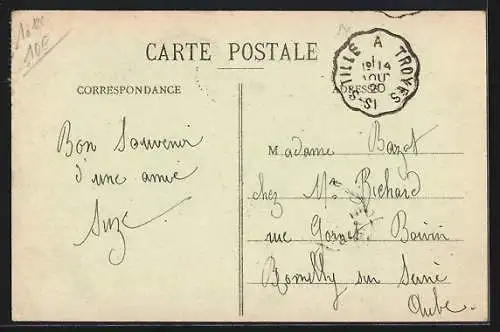 10F
CARTE POSTALE
CORRESPONDANCE
ADRESSE
IS-S-TILLE A TROYES
14
AOUT
20
Bon Souvenir
d'une amie
Suze
Madame Bazet
chez Mr Bichard
rue Gornet Boivin
Romilly sur Seine
Aube